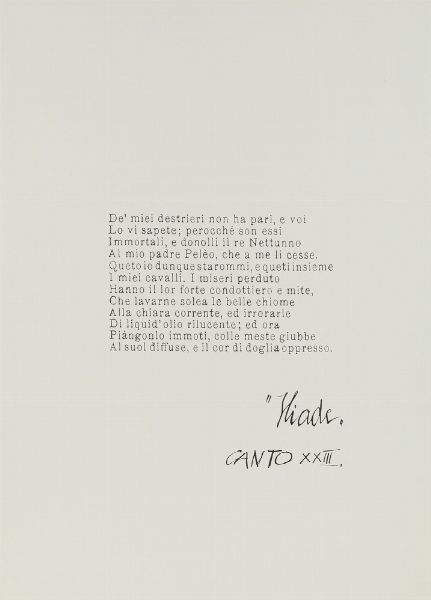 De' miei destrieri non ha pari, e voi
Lo vi sapete; perocché son essi
Immortali, e donolli il re Nettunno
Al mio padre Pelèo, che a me li cesse.
Queto io dunque starommi, e queti insieme
I miei cavalli. I miseri perduto
Hanno il lor forte condottiero e mite,
Che lavarne solea le belle chiome
Alla chiara corrente, ed irrorarle
Di liquid'olio rilucente; ed ora
Piángonlo immoti, colle meste giubbe
Al suol diffuse, e il cor di doglia oppresso.
"Iliade.
CANTO XXIII.